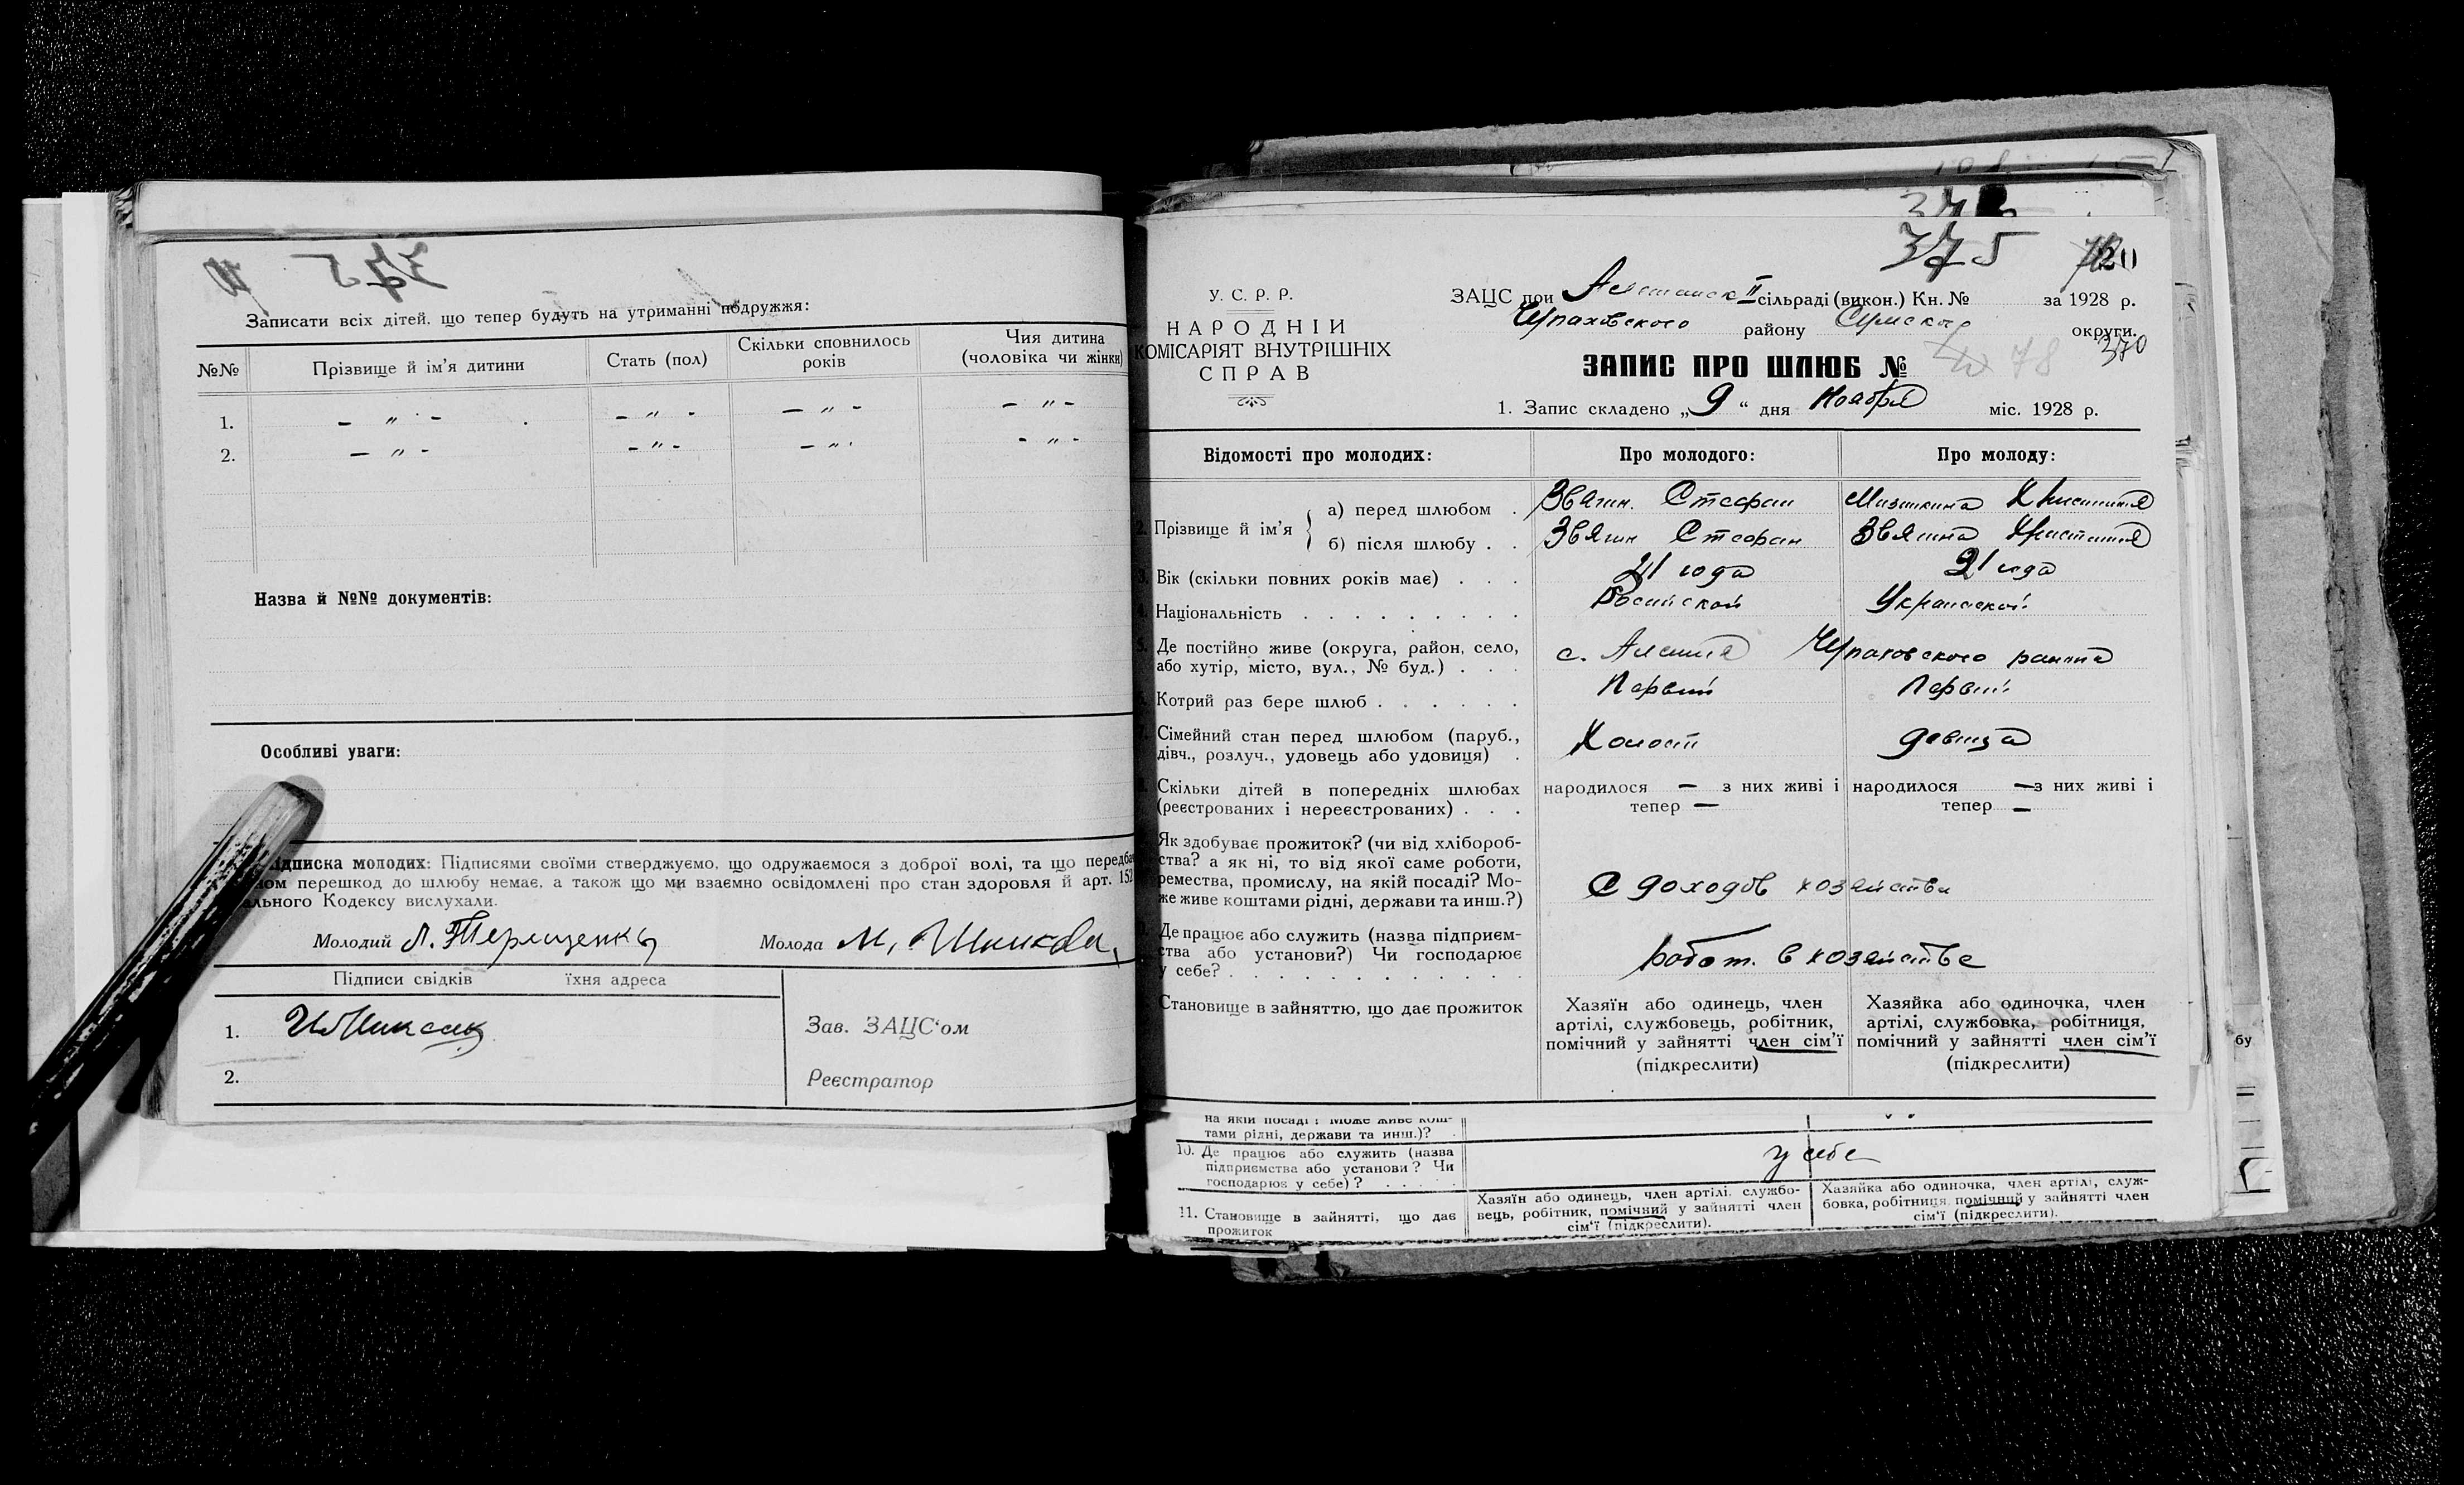 375
Записати всіх дітей, що тепер будуть на утриманні подружжя:
№№ Прізвище й ім'я дитини Стать (пол) Скільки сповнилось років Чия дитина (чоловіка чи жінки)
1. — " — — " — — " — — " —
2. — " — — " — — " — — " —
Назва й №№ документів:
Особливі уваги:
підписка молодих: Підписями своїми стверджуємо, що одружаємося з доброї волі, та що передба
ном перешкод до шлюбу немає, а також що ми взаємно освідомлені про стан здоровля й арт. 152
ального Кодексу вислухали.
Молодий Л. Терещенко Молода М.
Підписи свідків їхня адреса
1.
Зав. ЗАЦС'ом
2.
Реєстратор
375
У. С. Р. Р.
НАРОДНІЙ
КОМІСАРІЯТ ВНУТРІШНІХ
СПРАВ
ЗАЦС при II сільраді (викон.) Кн. № за 1928 р.
району Сумского округи.
370
ЗАПИС ПРО ШЛЮБ № 78
1. Запис складено „9“ дня Ноября міс. 1928 р.
Відомості про молодих: Про молодого: Про молоду:
2. Прізвище й ім'я { а) перед шлюбом . Звягин Стефан
б) після шлюбу . . Звягин Стефан Звягина Христиния
3. Вік (скільки повних років має) . . . 21 года 21 года
4. Національність . . . . . . . . . Росийской Украинской
5. Де постійно живе (округа, район, село,
або хутір, місто, вул., № буд.) . . . с. района
Котрий раз бере шлюб . . . . . . Первый Первый
Сімейний стан перед шлюбом (паруб.,
дівч., розлуч., удовець або удовиця) . Холост девица
Скільки дітей в попередніх шлюбах народилося — з них живі і народилося — з них живі і
(реєстрованих і нереєстрованих) . . . тепер — тепер —
Як здобуває прожиток? (чи від хлібороб-
ства? а як ні, то від якої саме роботи,
ремества, промислу, на якій посаді? Мо-
же живе коштами рідні, держави та инш.?) С доходов хозяйства
Де працює або служить (назва підприєм-
ства або установи?) Чи господарює
у себе? . . . . . . . . . . . . . робот. в хозяйстве
Становище в зайняттю, що дає прожиток
Хазяїн або одинець, член артілі, службовець, робітник, помічний у зайнятті член сім'ї (підкреслити)
Хазяйка або одиночка, член артілі, службовка, робітниця, помічний у зайнятті член сім'ї (підкреслити)
на якій посаді? Може живе кош-
тами рідні, держави та инш.)?
10. Де працює або служить (назва
підприємства або установи? Чи
господарює у себе)? . . . . . у себе
11. Становище в зайнятті, що дає
прожиток
Хазяїн або одинець, член артілі, службо-
вець, робітник, помічний у зайнятті член
сім'ї (підкреслити).
Хазяйка або одиночка, член артілі, служ-
бовка, робітниця, помічний у зайнятті член
сім'ї (підкреслити).
бу